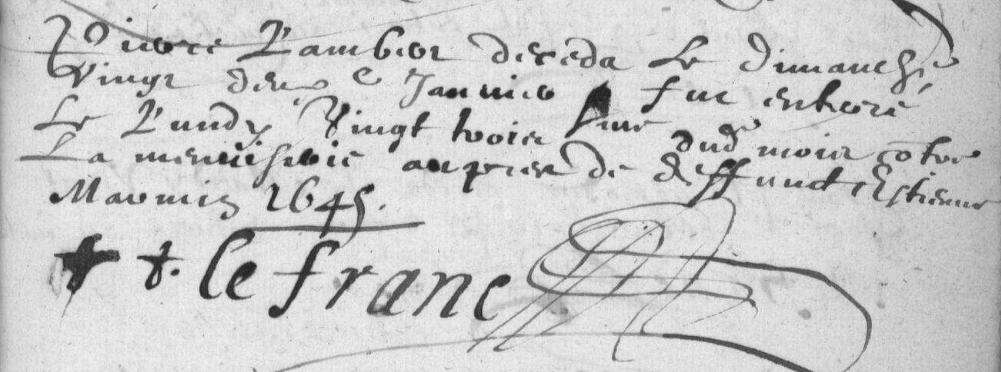 Pierre Lamber deceda Le dimanche
Vingt deux e Janvier fut enterré
Le Lundy Vingt trois dud mois cotre
La menuiserie aupres de deffunct Estienne
Marmin 1645.
le franc